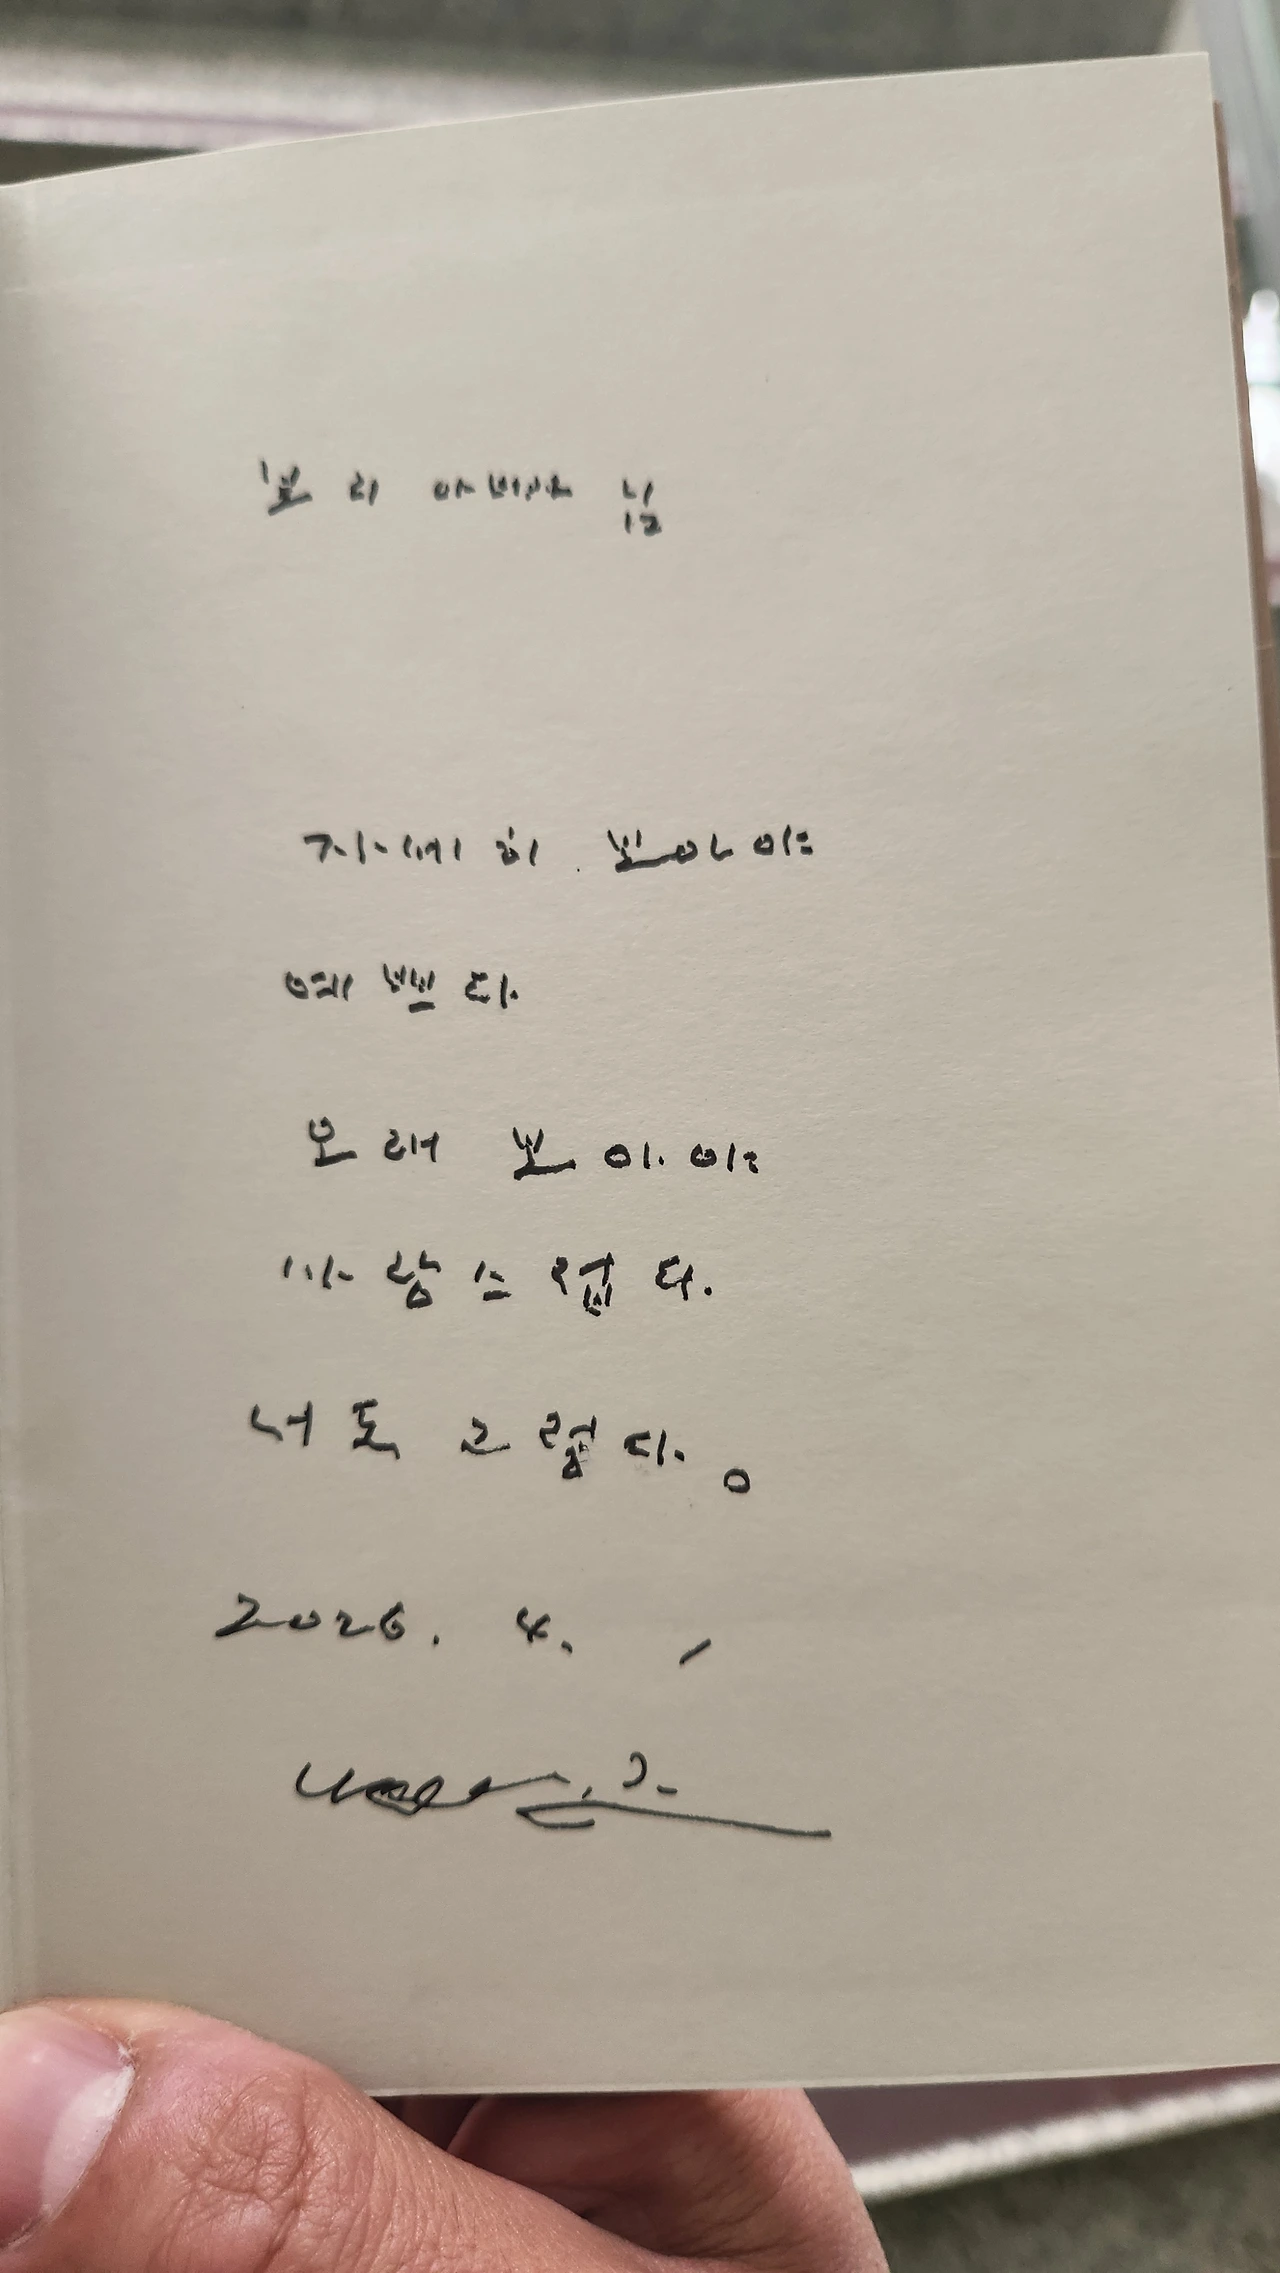 보리 아버지님
자세히 보아야
예쁘다.
오래 보아야
사랑스럽다.
너도 그렇다.
2026. 4.